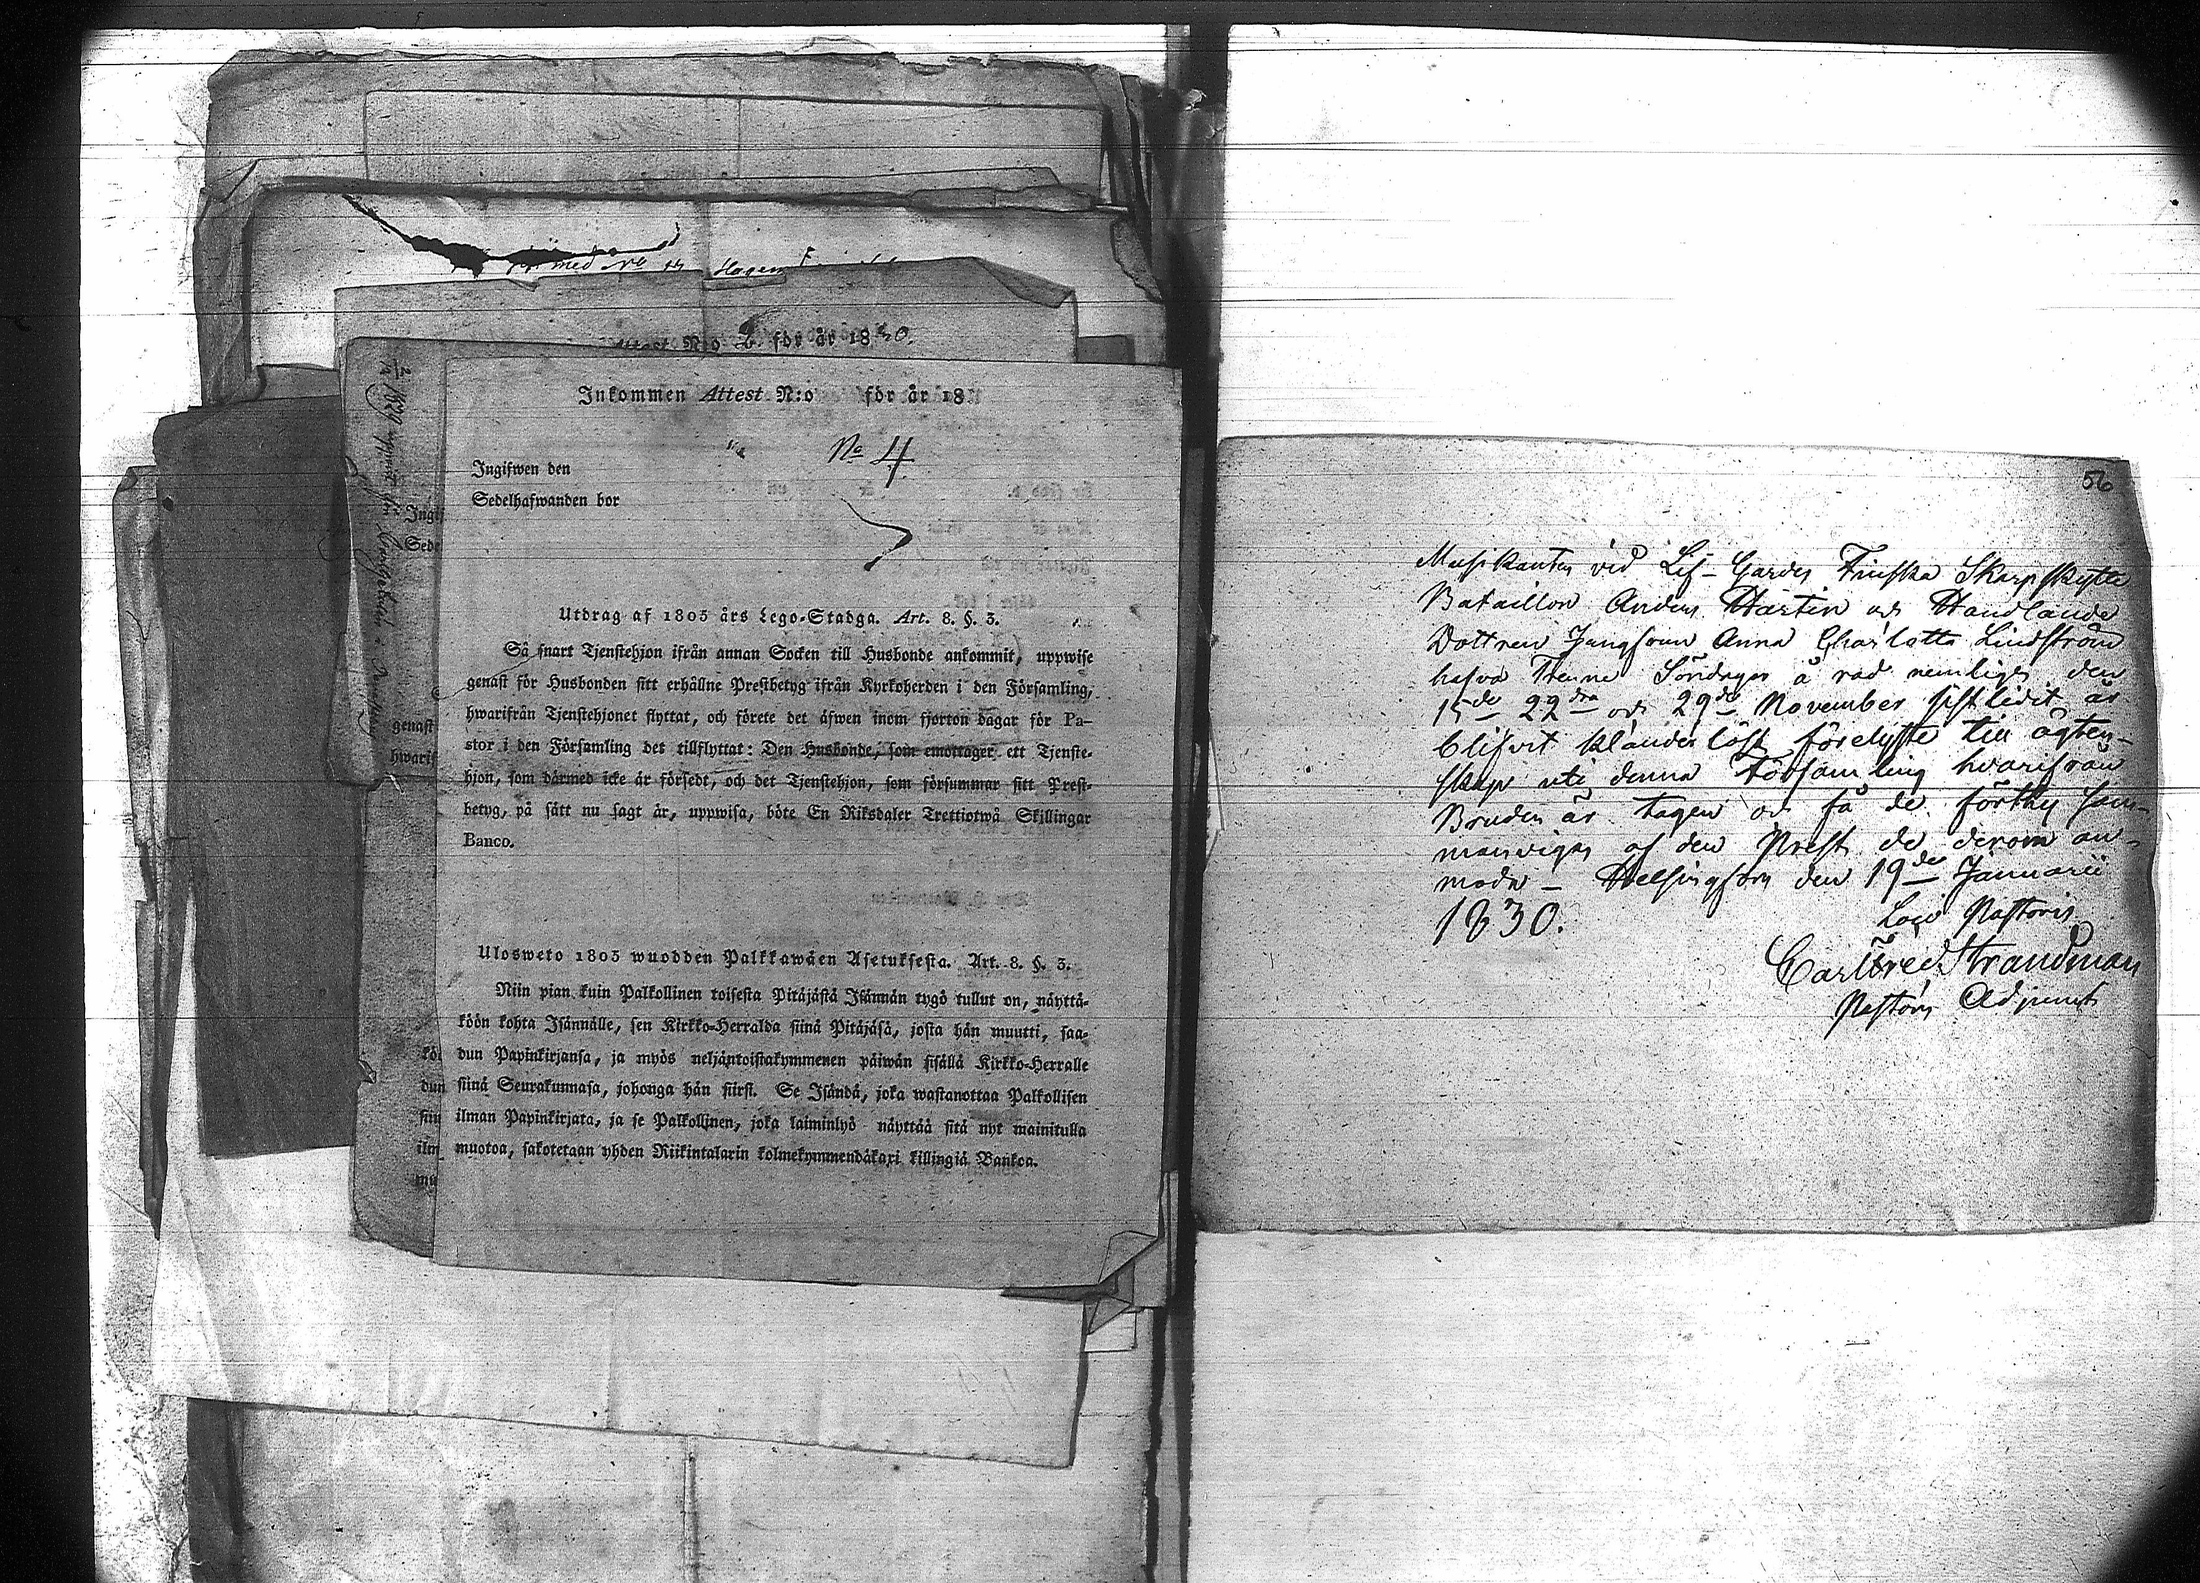 för år 1830.
Inkommen Attest N:o för år 18
No 4
Ingifwen den
Sedelhafwanden bor
Utdrag af 1805 års Lego-Stadga. Art. 8. §. 3.
Så snart Tjenstehjon ifrån annan Socken till Husbonde ankommit, uppwise
genast för Husbonden sitt erhållne Prestbetyg ifrån Kyrkoherden i den Församling,
hwarifrån Tjenstehjonet flyttat, och förete det äfwen inom fjorton dagar för Pa-
stor i den Församling det tillflyttat: Den Husbonde, som emottager ett Tjenste-
hjon, som därmed icke är försedt, och det Tjenstehjon, som försummar sitt Prest-
betyg, på sätt nu sagt är, uppwisa, böte En Riksdaler Trettiotwå Skillingar
Banco.
Ulosweto 1805 wuodden Palkkawäen Asetuksesta. Art. 8. §. 3.
Niin pian kuin Palkollinen toisesta Pitäjästä Isännän tygö tullut on, näyttä-
köön kohta Isännälle, sen Kirkko-Herralda siinä Pitäjäsä, josta hän muutti, saa-
dun Papinkirjansa, ja myös neljäntoistakymmenen päiwän sisällä Kirkko-Herralle
siinä Seurakunnasa, johonga hän siirsi. Se Isändä, joka wastanottaa Palkollisen
ilman Papinkirjata, ja se Palkollinen, joka laiminlyö näyttää sitä nyt mainitulla
muotoa, sakotetaan yhden Riikintalarin kolmekymmendäkaxi killingiä Bankoa.
56
Musikanten vid Lif-Gardes Finska Skarpskytte
Bataillon Anders Hästen och Handlande
Dottren Jungfrun Anna Charlotta Lindström
hafva Trenne Söndagar å rad nemligen den
15de 22dra och 29de November sistledit år
blifvit klanderlöst förelyste till ägten-
skap uti denna Församling hvarifrån
Bruden är tagen och få de förthy sam-
manvigas af den Prest de derom an-
moda - Helsingfors den 19de Januarii
1830.
Loco Pastoris
Carl Fred Strandman
Pastors Adjunct